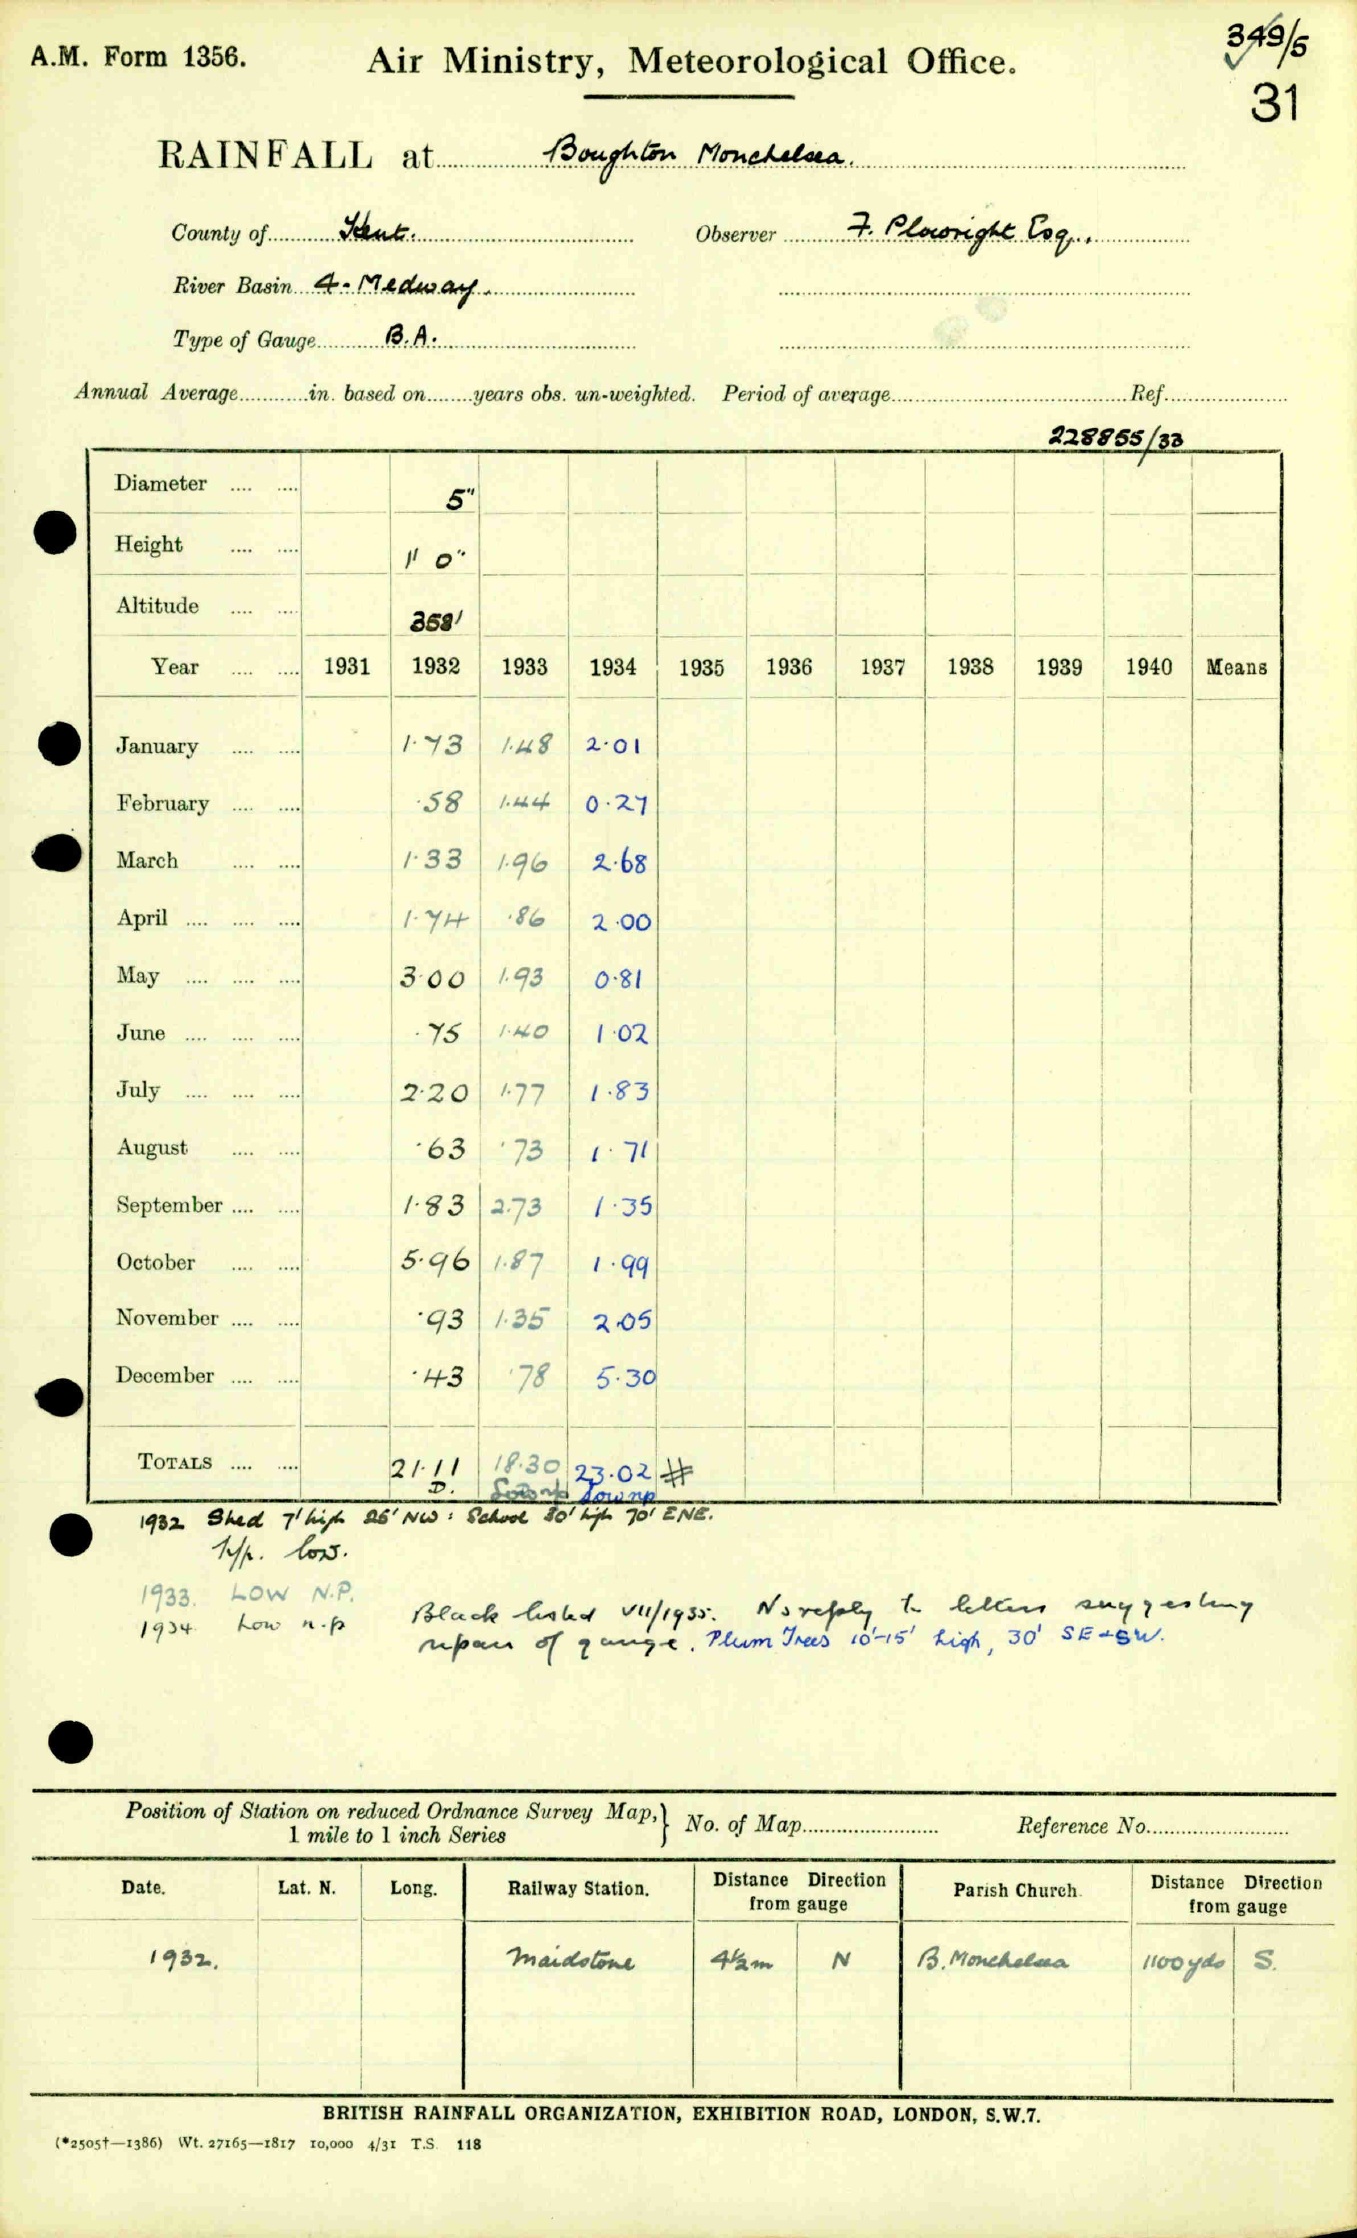 349/5
A.M. Form 1356. Air Ministry, Meteorological Office.
31
RAINFALL at Boughton Monchelsea.
County of Kent. Observer F. Plowright Esq.
River Basin 4 - Medway.
Type of Gauge B.A.
Annual Average in. based on years obs. un-weighted. Period of average Ref.
228855/33
Diameter 5"
Height 1' 0"
Altitude 358'
Year 1931 1932 1933 1934 1935 1936 1937 1938 1939 1940 Means
January 1.73 1.48 2.01
February .58 1.44 0.27
March 1.33 1.96 2.68
April 1.74 .86 2.00
May 3.00 1.93 0.81
June .75 1.40 1.02
July 2.20 1.77 1.83
August .63 .73 1.71
September 1.83 2.73 1.35
October 5.96 1.87 1.99
November .93 1.35 2.05
December .43 .78 5.30
TOTALS 21.11 18.30 23.02 #
D. Low np Low np
1932 Shed 7' high 25' NW: School 30' high 70' ENE.
N/p. low.
1933. LOW N.P.
1934 Low n.p Black listed VII/1935. No reply to letters suggesting
repair of gauge. Plum Trees 10'-15' high, 30' SE + SW.
Position of Station on reduced Ordnance Survey Map,} No. of Map Reference No.
1 mile to 1 inch Series
Date. Lat. N. Long. Railway Station. Distance Direction from gauge Parish Church. Distance Direction from gauge
1932. Maidstone 4½m N B. Monchelsea 1100 yds S.
BRITISH RAINFALL ORGANIZATION, EXHIBITION ROAD, LONDON, S.W.7.
(*2505†—1386) Wt. 27165—1817 10,000 4/31 T.S. 118